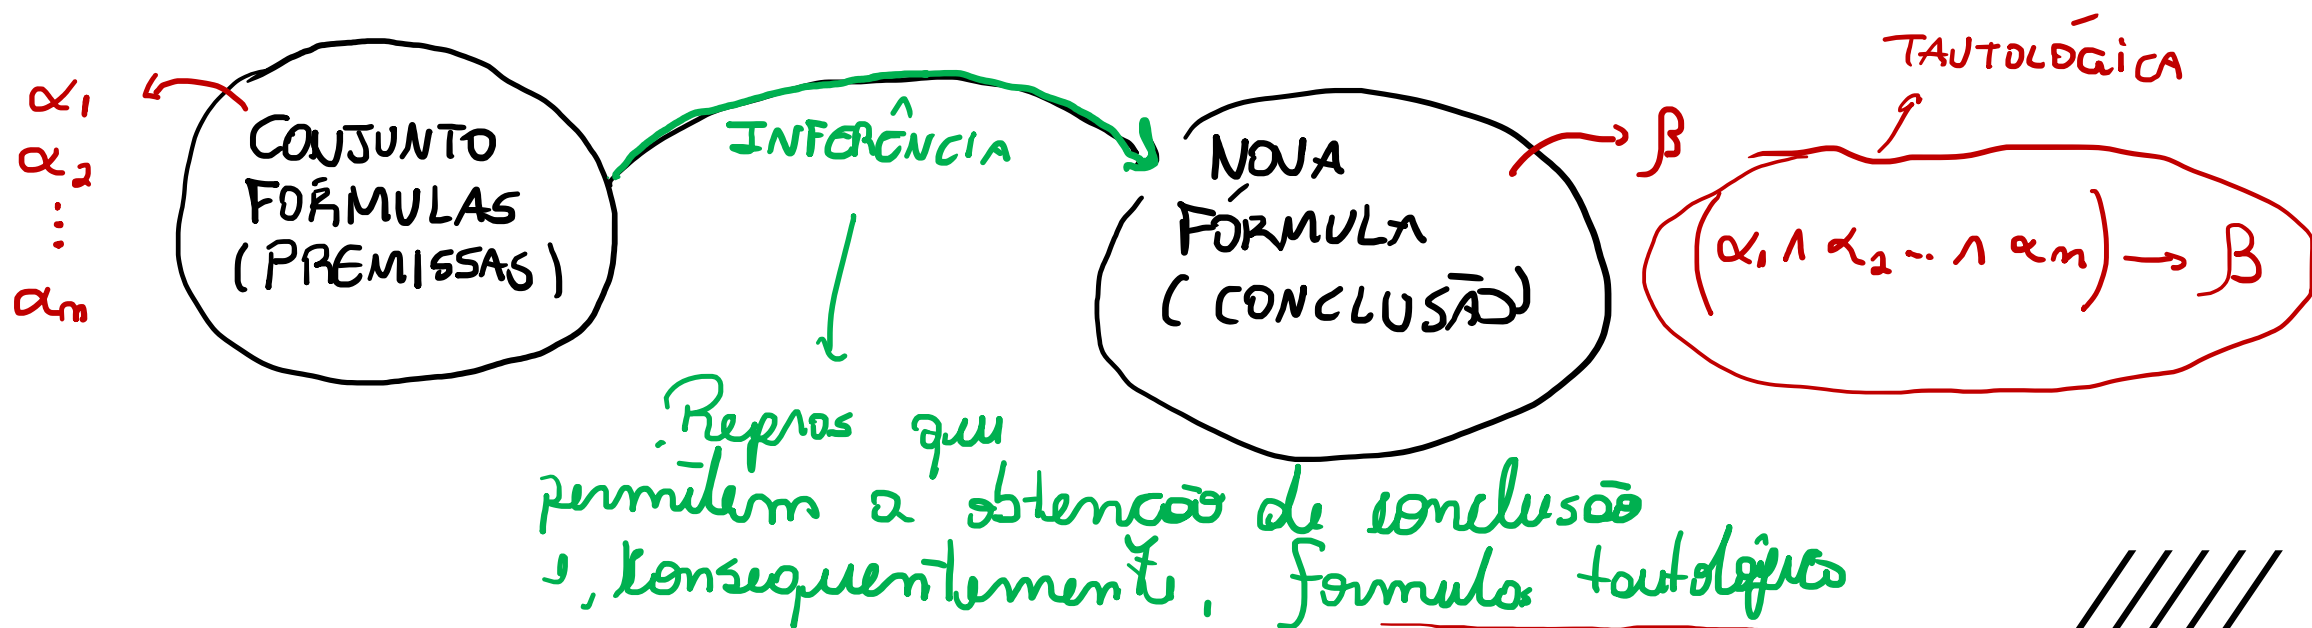 α1
α2
⋮
αn
CONJUNTO
FÓRMULAS
(PREMISSAS)
INFERÊNCIA
NOVA
FÓRMULA
(CONCLUSÃO)
β
TAUTOLÓGICA
(α1 ∧ α2 ... ∧ αn) → β
Regras que
permitem a obtenção de conclusão
e, consequentemente, formulas tautológicas